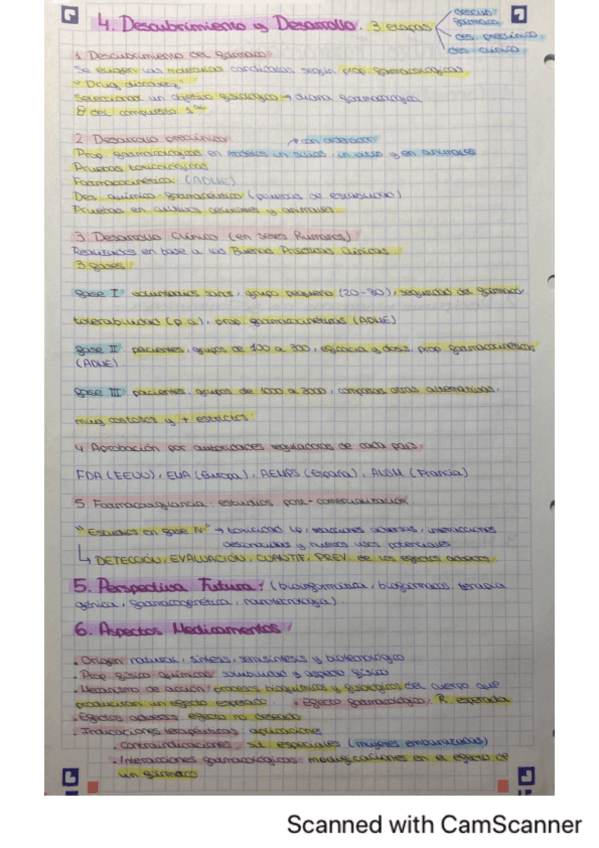 4. Descubrimiento y Desarrollo. 3 etapas
descub. fármaco
des. preclínico
des. clínico
1. Descubrimiento del fármaco
Se eligen las moléculas candidatas según prop. farmacológicas
"Drug discovery"
Seleccionar un objetivo fisiológico → diana farmacológica
del compuesto
2. Desarrollo preclínico → con ordenador
Prop. farmacológicas en modelos in silico, in vitro y en animales
Pruebas toxicológicas
Farmacocinética (ADME)
Des. químico farmacéutico (pruebas de estabilidad)
Pruebas en cultivos celulares y animales
3. Desarrollo Clínico (en seres humanos)
Realizados en base a las Buenas Prácticas Clínicas
3 fases
fase I: voluntarios sanos, grupo pequeño (20-80), seguridad del fármaco
tolerabilidad (p.a), prop. farmacocinéticas (ADME)
fase II: pacientes, grupos de 100 a 300, eficacia y dosis, prop. farmacocinéticas
(ADME)
fase III: pacientes, grupos de 1000 a 3000, comparas otras alternativas,
muy costosos y + estrictos
4. Aprobación por autoridades reguladoras de cada país:
FDA (EEUU), EMA (Europa), AEMPS (España), (Francia)
5. Farmacovigilancia: estudios post-comercialización
"Estudios en fase IV" → toxicidad reacciones adversas, interacciones
desconocidas y nuevos usos potenciales
↳ DETECCIÓN, EVALUACIÓN, CUANTIF, PREV. de los efectos adversos
5. Perspectiva Futura: (bioinformática, biofármacos, terapia
génica, farmacogenética, nanotecnología)
6. Aspectos Medicamentos
· Origen: natural, síntesis, semisíntesis y biotecnológico
· Prop. físico químicas: solubilidad y aspecto físico
· Mecanismo de acción: procesos bioquímicos y fisiológicos del cuerpo que
producirán un efecto esperado · Efecto farmacológico: R. esperada
· Efectos adversos: efecto no deseado
· Indicaciones terapéuticas: aplicaciones
· contraindicaciones: sit. especiales (mujeres embarazadas)
· Interacciones farmacológicas: modificaciones en el efecto de
un fármaco
Scanned with CamScanner